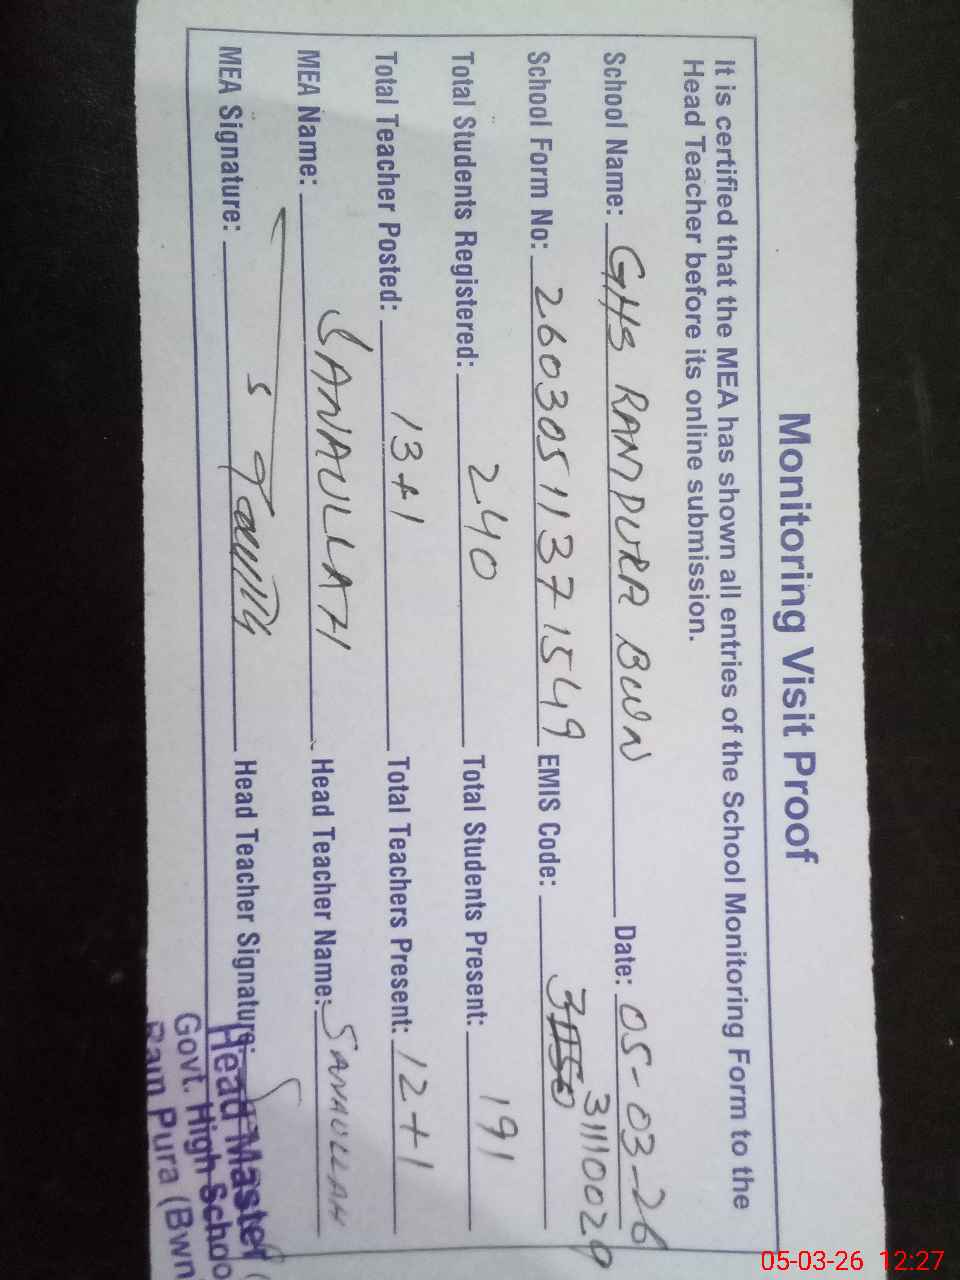 Monitoring Visit Proof
It is certified that the MEA has shown all entries of the School Monitoring Form to the
Head Teacher before its online submission.
School Name: GHS RAMPURA BWN Date: 05-03-26
School Form No: 2603051137 1549 EMIS Code: 31110029
Total Students Registered: 240 Total Students Present: 191
Total Teacher Posted: 13+1 Total Teachers Present: 12+1
MEA Name: SANAULLAH Head Teacher Name: SANAULLAH
MEA Signature: Head Teacher Signature:
Head Master
Govt. High Schoo
Ram Pura (Bwn
05-03-26 12:27